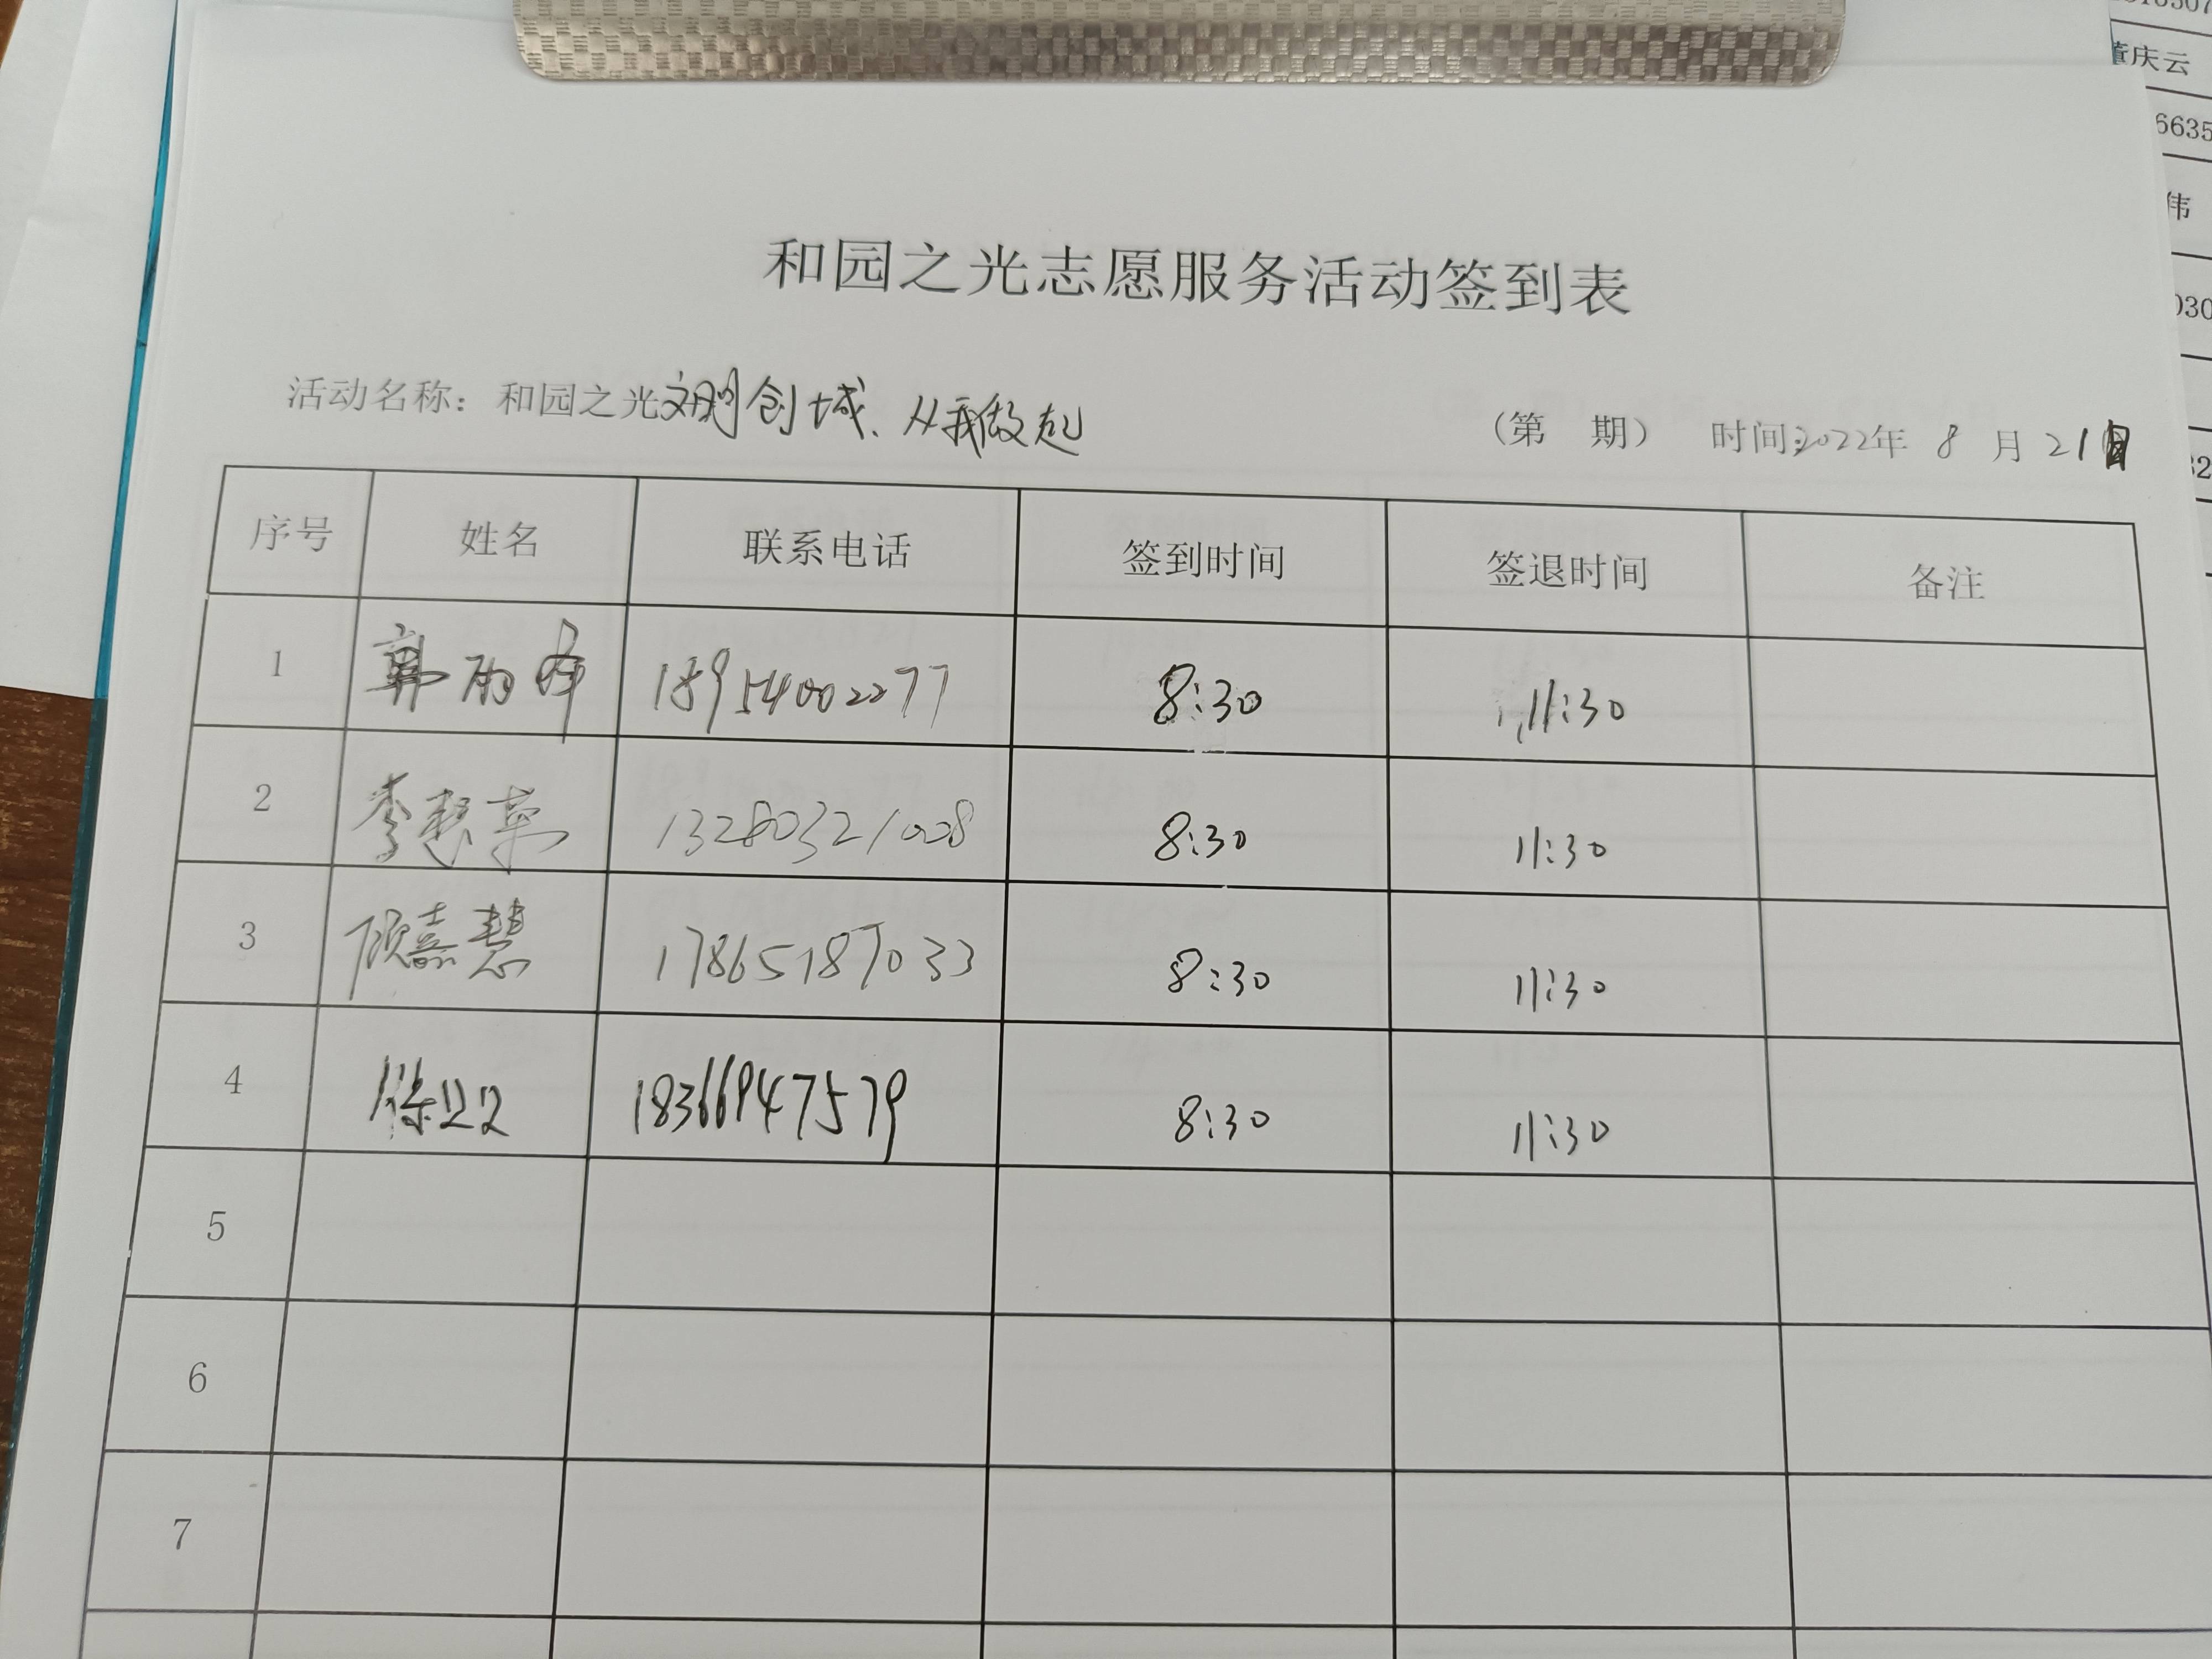 和园之光志愿服务活动签到表
活动名称：和园之光文明创城、从我做起 （第 期） 时间:2022年 8 月 21日
序号 姓名 联系电话 签到时间 签退时间 备注
1 郭雨峰 18954002277 8:30 11:30
2 李慧英 13280321008 8:30 11:30
3 顾嘉慧 17865187033 8:30 11:30
4 18366947579 8:30 11:30
5
6
7
董庆云
6635
伟
030